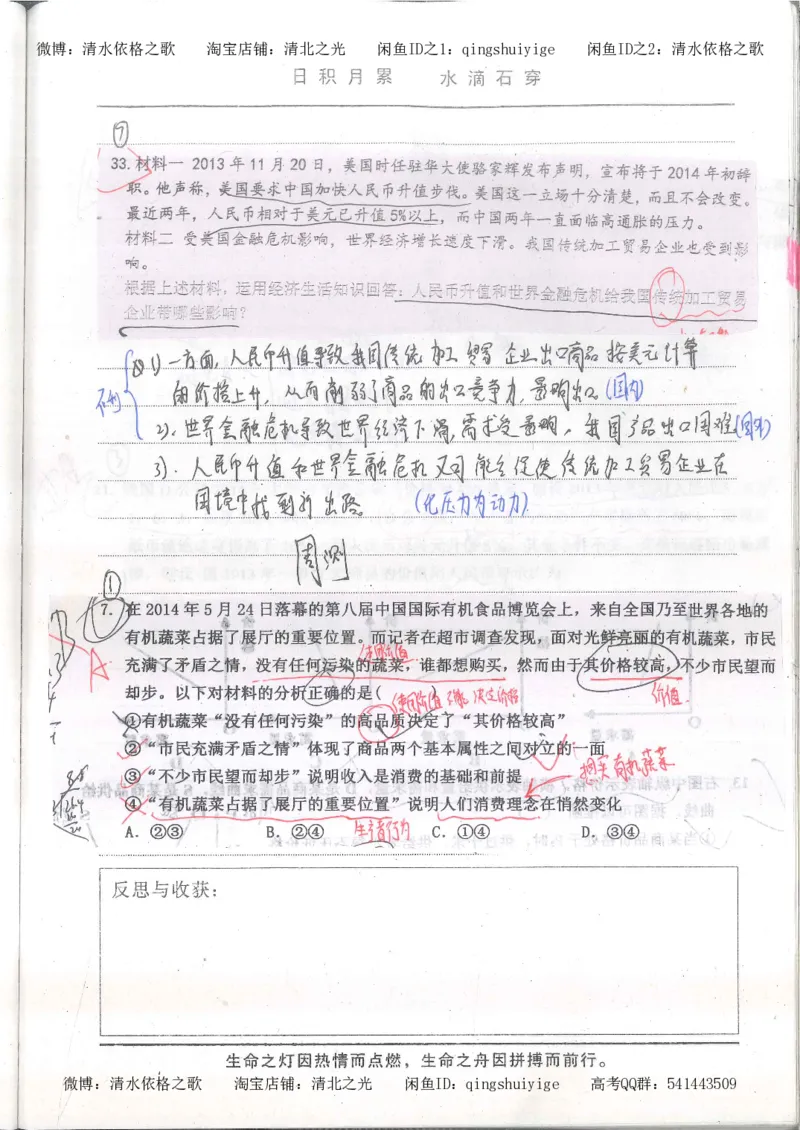 微博：清水依格之歌 淘宝店铺：清北之光 闲鱼ID之1：qingshuiyige 闲鱼ID之2：清水依格之歌
日积月累 水滴石穿
⑦
33.材料一 2013年11月20日，美国时任驻华大使骆家辉发布声明，宣布将于2014年初辞
职。他声称，美国要求中国加快人民币升值步伐。美国这一立场十分清楚，而且不会改变。
最近两年，人民币相对于美元已升值5%以上，而中国两年一直面临高通胀的压力。
材料二 受美国金融危机影响，世界经济增长速度下滑。我国传统加工贸易企业也受到影
响。
根据上述材料，运用经济生活知识回答：人民币升值和世界金融危机给我国传统加工贸易
企业带哪些影响？
1)一方面，人民币升值导致我国传统加工贸易企业出口商品按美元计算
的价格上升，从而削弱了商品的出口竞争力，影响出口。(国内)
不利
2)，世界金融危机导致世界经济下滑，需求受影响，我国产品出口困难(国外)
3)．人民币升值和世界金融危机又可能会促使传统加工贸易企业在
困境中找到新出路。 (化压力为动力)
周测
①
7. 在2014年5月24日落幕的第八届中国国际有机食品博览会上，来自全国乃至世界各地的
有机蔬菜占据了展厅的重要位置。而记者在超市调查发现，面对光鲜亮丽的有机蔬菜，市民
使用价值
充满了矛盾之情，没有任何污染的蔬菜，谁都想购买，然而由于其价格较高，不少市民望而
却步。以下对材料的分析正确的是(
价值
A
①有机蔬菜“没有任何污染”的高品质决定了“其价格较高”
②“市民充满矛盾之情”体现了商品两个基本属性之间对立的一面
想买有机蔬菜
③“不少市民望而却步”说明收入是消费的基础和前提
④“有机蔬菜占据了展厅的重要位置”说明人们消费理念在悄然变化
A．②③ B．②④ C．①④ D．③④
生产者行为
反思与收获：
生命之灯因热情而点燃，生命之舟因拼搏而前行。
微博：清水依格之歌 淘宝店铺：清北之光 闲鱼ID：qingshuiyige 高考QQ群：541443509